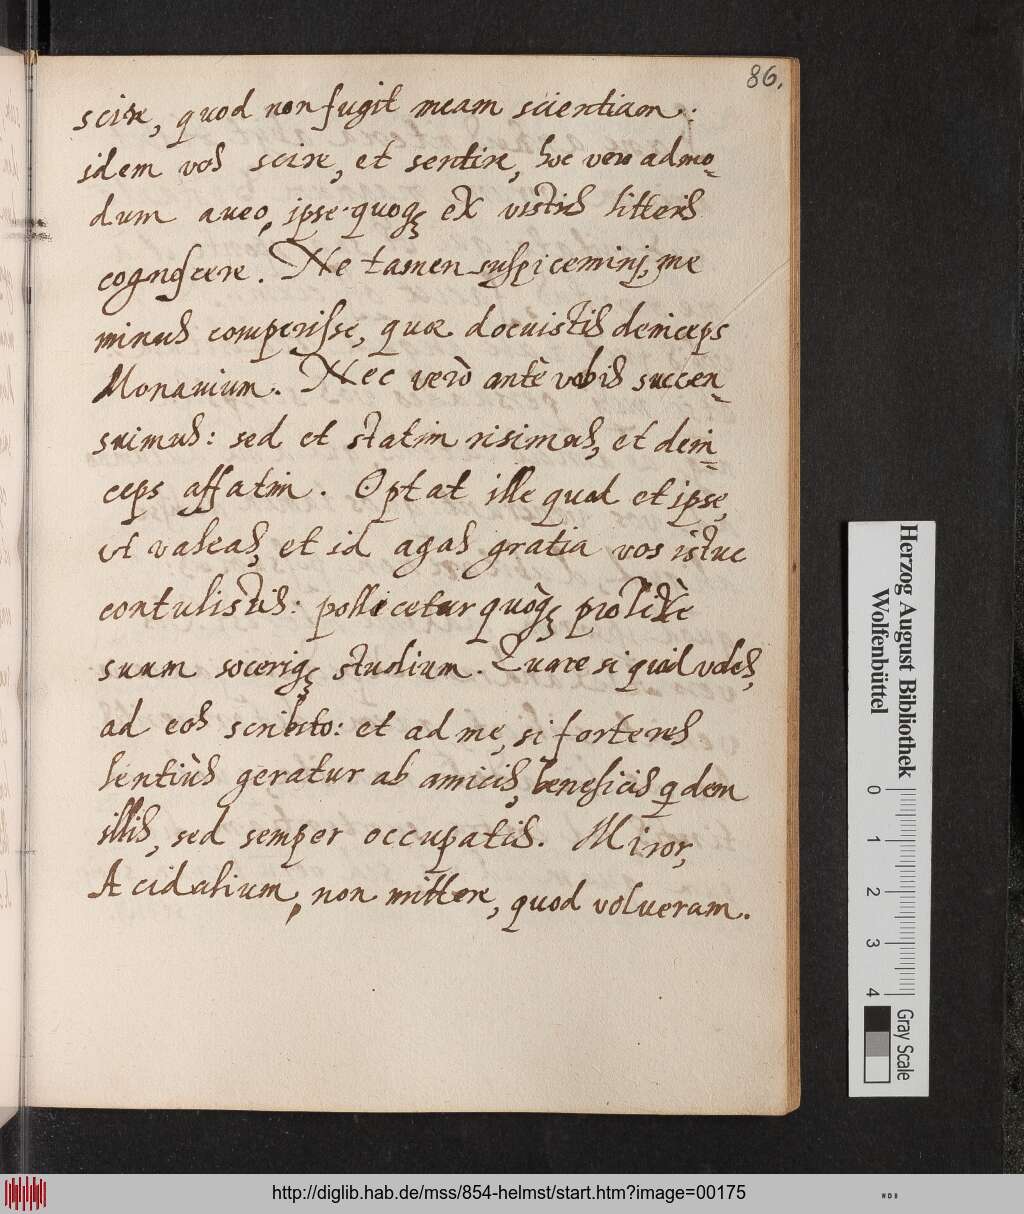 86.
scire, quod non fugit meam scientiam:
idem vos scire, et sentire, hoc vero admo-
dum aveo, ipse quoq; ex vestris litteris
cognoscere. Ne tamen suspicemini, me
minus comperisse, quae docuistis deinceps
Monavium. Nec verò antè vobis succen-
suimus: sed et statim risimus, et dein-
ceps affatim. Optat ille quod et ipse,
ut valeas, et id agas gratia vos istuc
contulistis: pollicetur quòq; prolixè
suum soceriq; studium. Quare si quid voles,
ad eos scribito: et ad me, si forte res
lentiùs geratur ab amicis, beneficis qdem
illis, sed semper occupatis. Miror,
Acidalium, non mittere, quod volueram.
Herzog August Bibliothek
Wolfenbüttel
0 1 2 3 4
Gray Scale
http://diglib.hab.de/mss/854-helmst/start.htm?image=00175